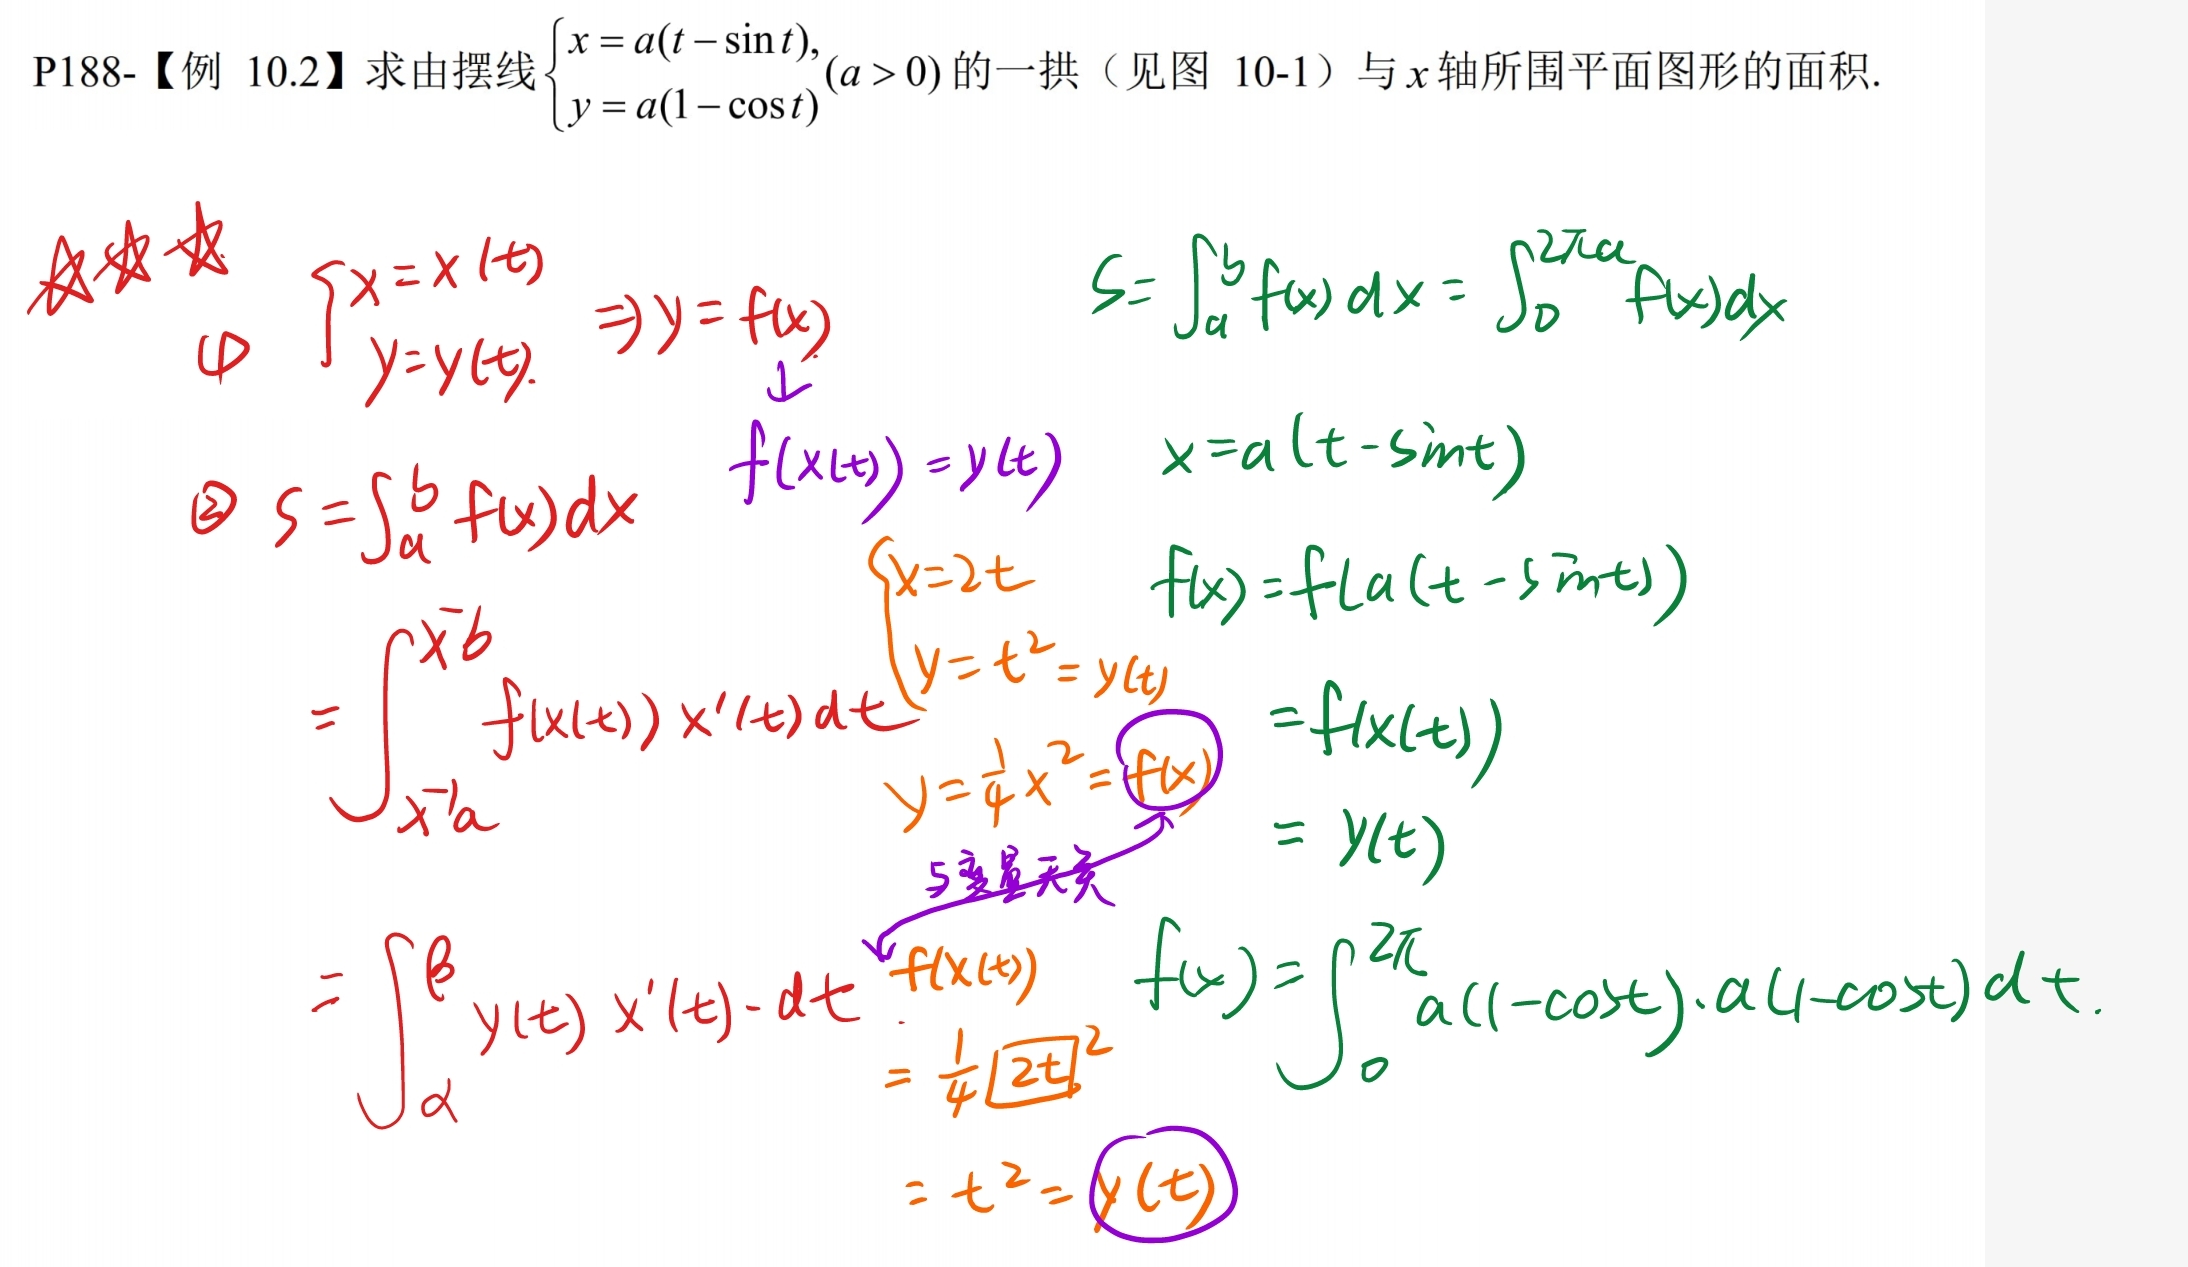 P188-【例 10.2】求由摆线{x = a(t − sin t), y = a(1 − cos t) (a > 0) 的一拱（见图 10-1）与 x 轴所围平面图形的面积.
☆☆☆
① {x = x(t)
y = y(t). ⇒ y = f(x)
↓
f(x(t)) = y(t)
② S = ∫_a^b f(x)dx
= ∫_{x⁻¹a}^{x⁻b} f(x(t)) x'(t)dt
= ∫_α^β y(t) x'(t)·dt.
{x = 2t
y = t² = y(t)
y = 1/4 x² = f(x)
5变量无关
f(x(t))
= 1/4 [2t]²
= t² = y(t)
S = ∫_a^b f(x)dx = ∫_0^{2πa} f(x)dx
x = a(t - sint)
f(x) = f(a(t - sint))
= f(x(t))
= y(t)
f(x) = ∫_0^{2π} a(1-cost)·a(1-cost)dt.